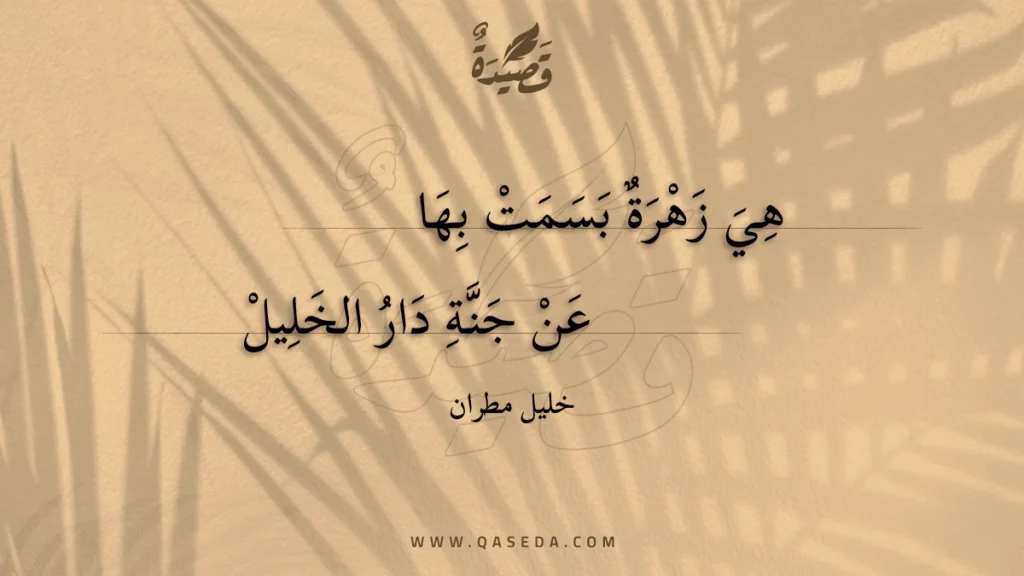 قَصِيدَةٌ
هِيَ زَهْرَةٌ بَسَمَتْ بِهَا
عَنْ جَنَّةِ دَارُ الخَلِيلْ
خليل مطران
WWW.QASEDA.COM